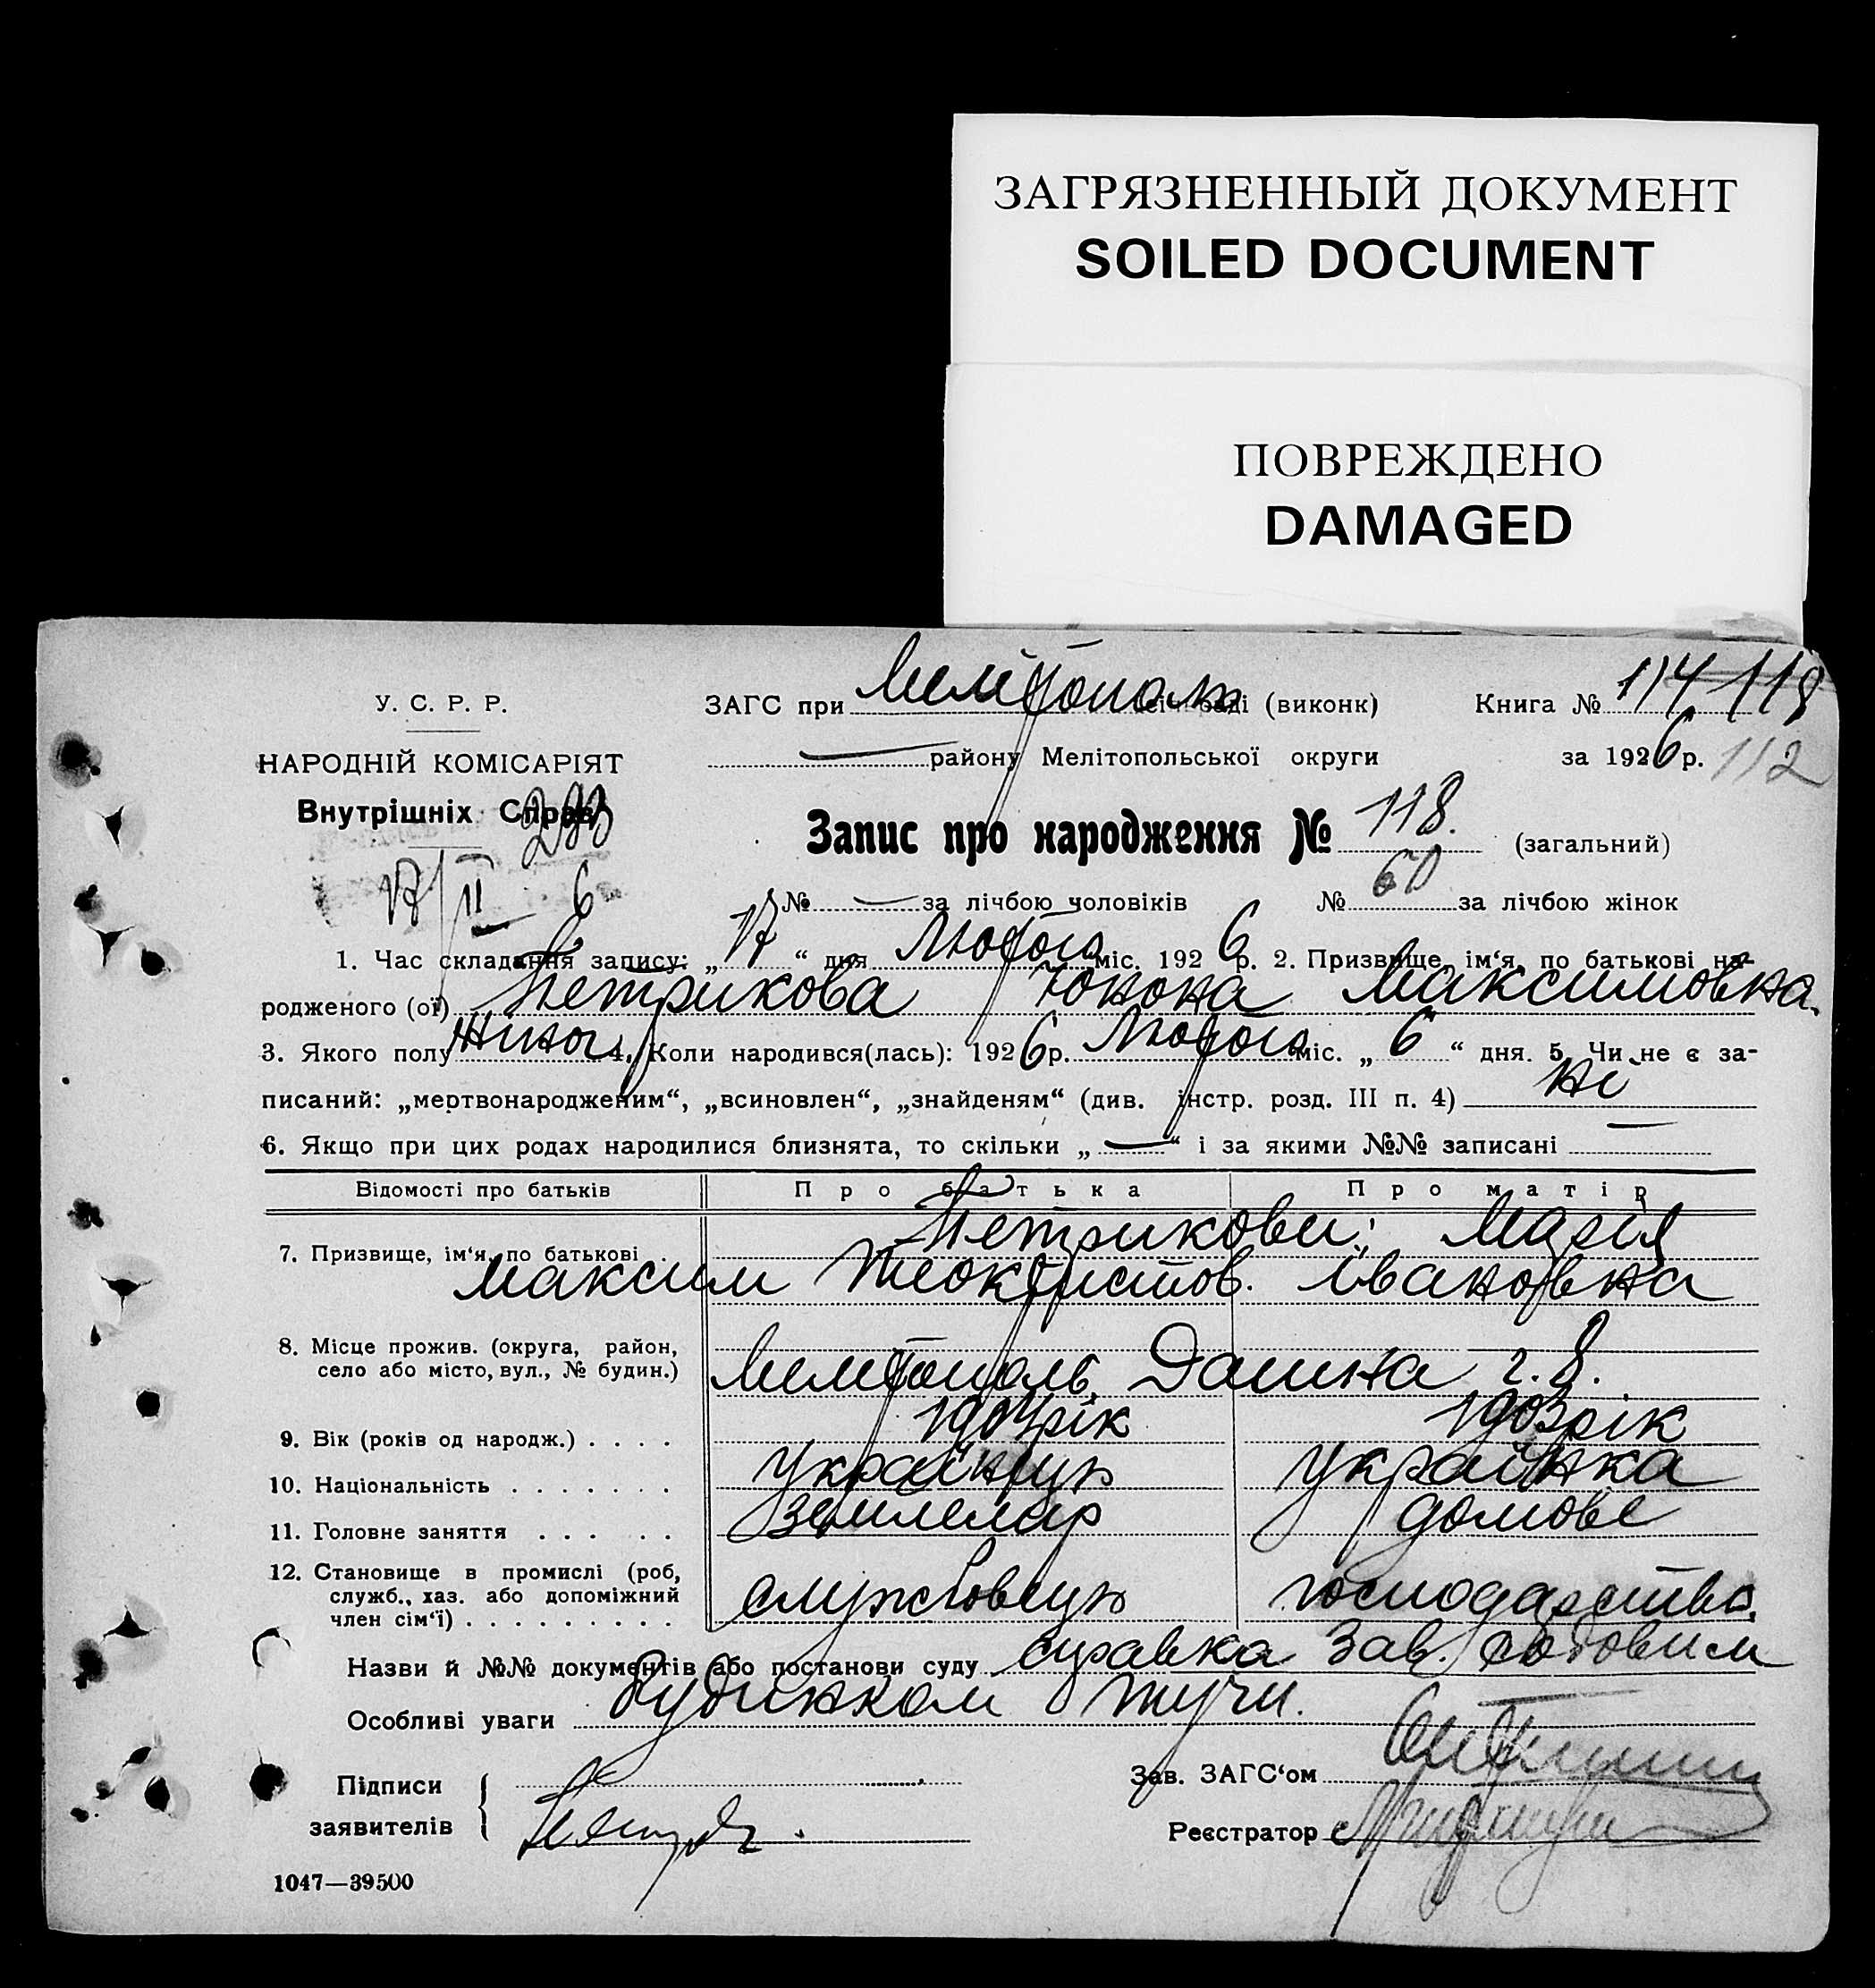 ЗАГРЯЗНЕННЫЙ ДОКУМЕНТ
SOILED DOCUMENT
ПОВРЕЖДЕНО
DAMAGED
У. С. Р. Р.
НАРОДНІЙ КОМІСАРІЯТ
Внутрішніх Справ
ЗАГС при раді (виконк) Книга № 114 118
району Мелітопольської округи за 1926 р. 112
Запис про народження № 118. (загальний)
17/II 6
№ — за лічбою чоловіків № 60 за лічбою жінок
1. Час складання запису: „ 17 “ дня Лютого міс. 1926 р. 2. Призвище, ім‘я, по батькові на-
родженого (ої) Петрикова Юнона Максимовна.
3. Якого полу жіноч. 4. Коли народився(лась): 1926 р. Лютого міс. „ 6 “ дня. 5. Чи не є за-
писаний: „мертвонародженим“, „всиновлен“, „знайденям“ (див. інстр. розд. III п. 4) ні
6. Якщо при цих родах народилися близнята, то скільки „ — “ і за якими №№ записані —
Відомості про батьків Про батька Про матір
7. Призвище, ім‘я, по батькові Петрикови: Марія
Максим Теоктистов. Івановна
8. Місце прожив. (округа, район,
село або місто, вул., № будин.) Мелітополь, 8.
9. Вік (років од народж.) . . . . 1904 рік 1903 рік
10. Національність . . . . . . . українець українка
11. Головне заняття . . . . . землемір домове
12. Становище в промислі (роб,
служб., хаз. або допоміжний
член сім‘ї) . . . . . . . . . службовець господарство.
Назви й №№ документів або постанови суду справка Зав. родовим
Особливі уваги будинком
Підписи
заявителів
Зав. ЗАГС‘ом
Реєстратор
1047—39500